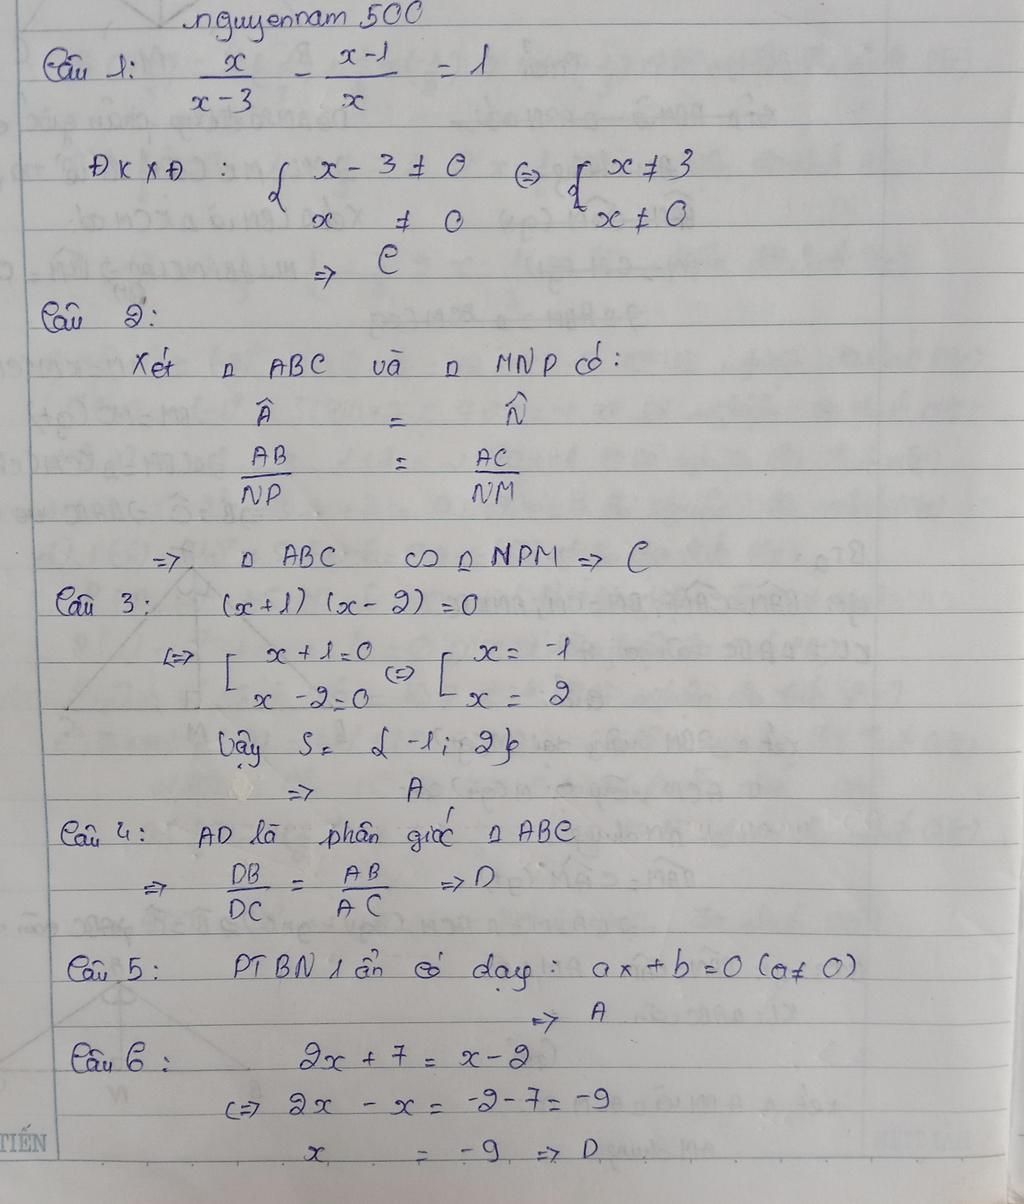 nguyennam 500
Câu 1: x/(x-3) - (x-1)/x = 1
ĐKXĐ: { x - 3 ≠ 0 ⇔ { x ≠ 3
x ≠ 0 x ≠ 0
⇒ C
Câu 2:
Xét Δ ABC và Δ MNP có:
Â = N̂
AB/NP = AC/NM
⇒ Δ ABC ∽ Δ NPM ⇒ C
Câu 3: (x+1) (x-2) = 0
⇔ [ x+1=0 ⇔ [ x = -1
x -2=0 x = 2
Vậy S = {-1; 2}
⇒ A
Câu 4: AD là phân giác Δ ABC
⇒ DB/DC = AB/AC ⇒ D
Câu 5: PTBN 1 ẩn có dạng: ax+b=0 (a≠0)
⇒ A
Câu 6: 2x+7 = x-2
⇔ 2x - x = -2-7=-9
x = -9 ⇒ D
TIẾN